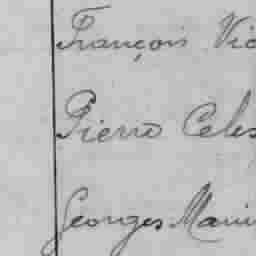 François Vic
Pierre Celes
Georges Mari